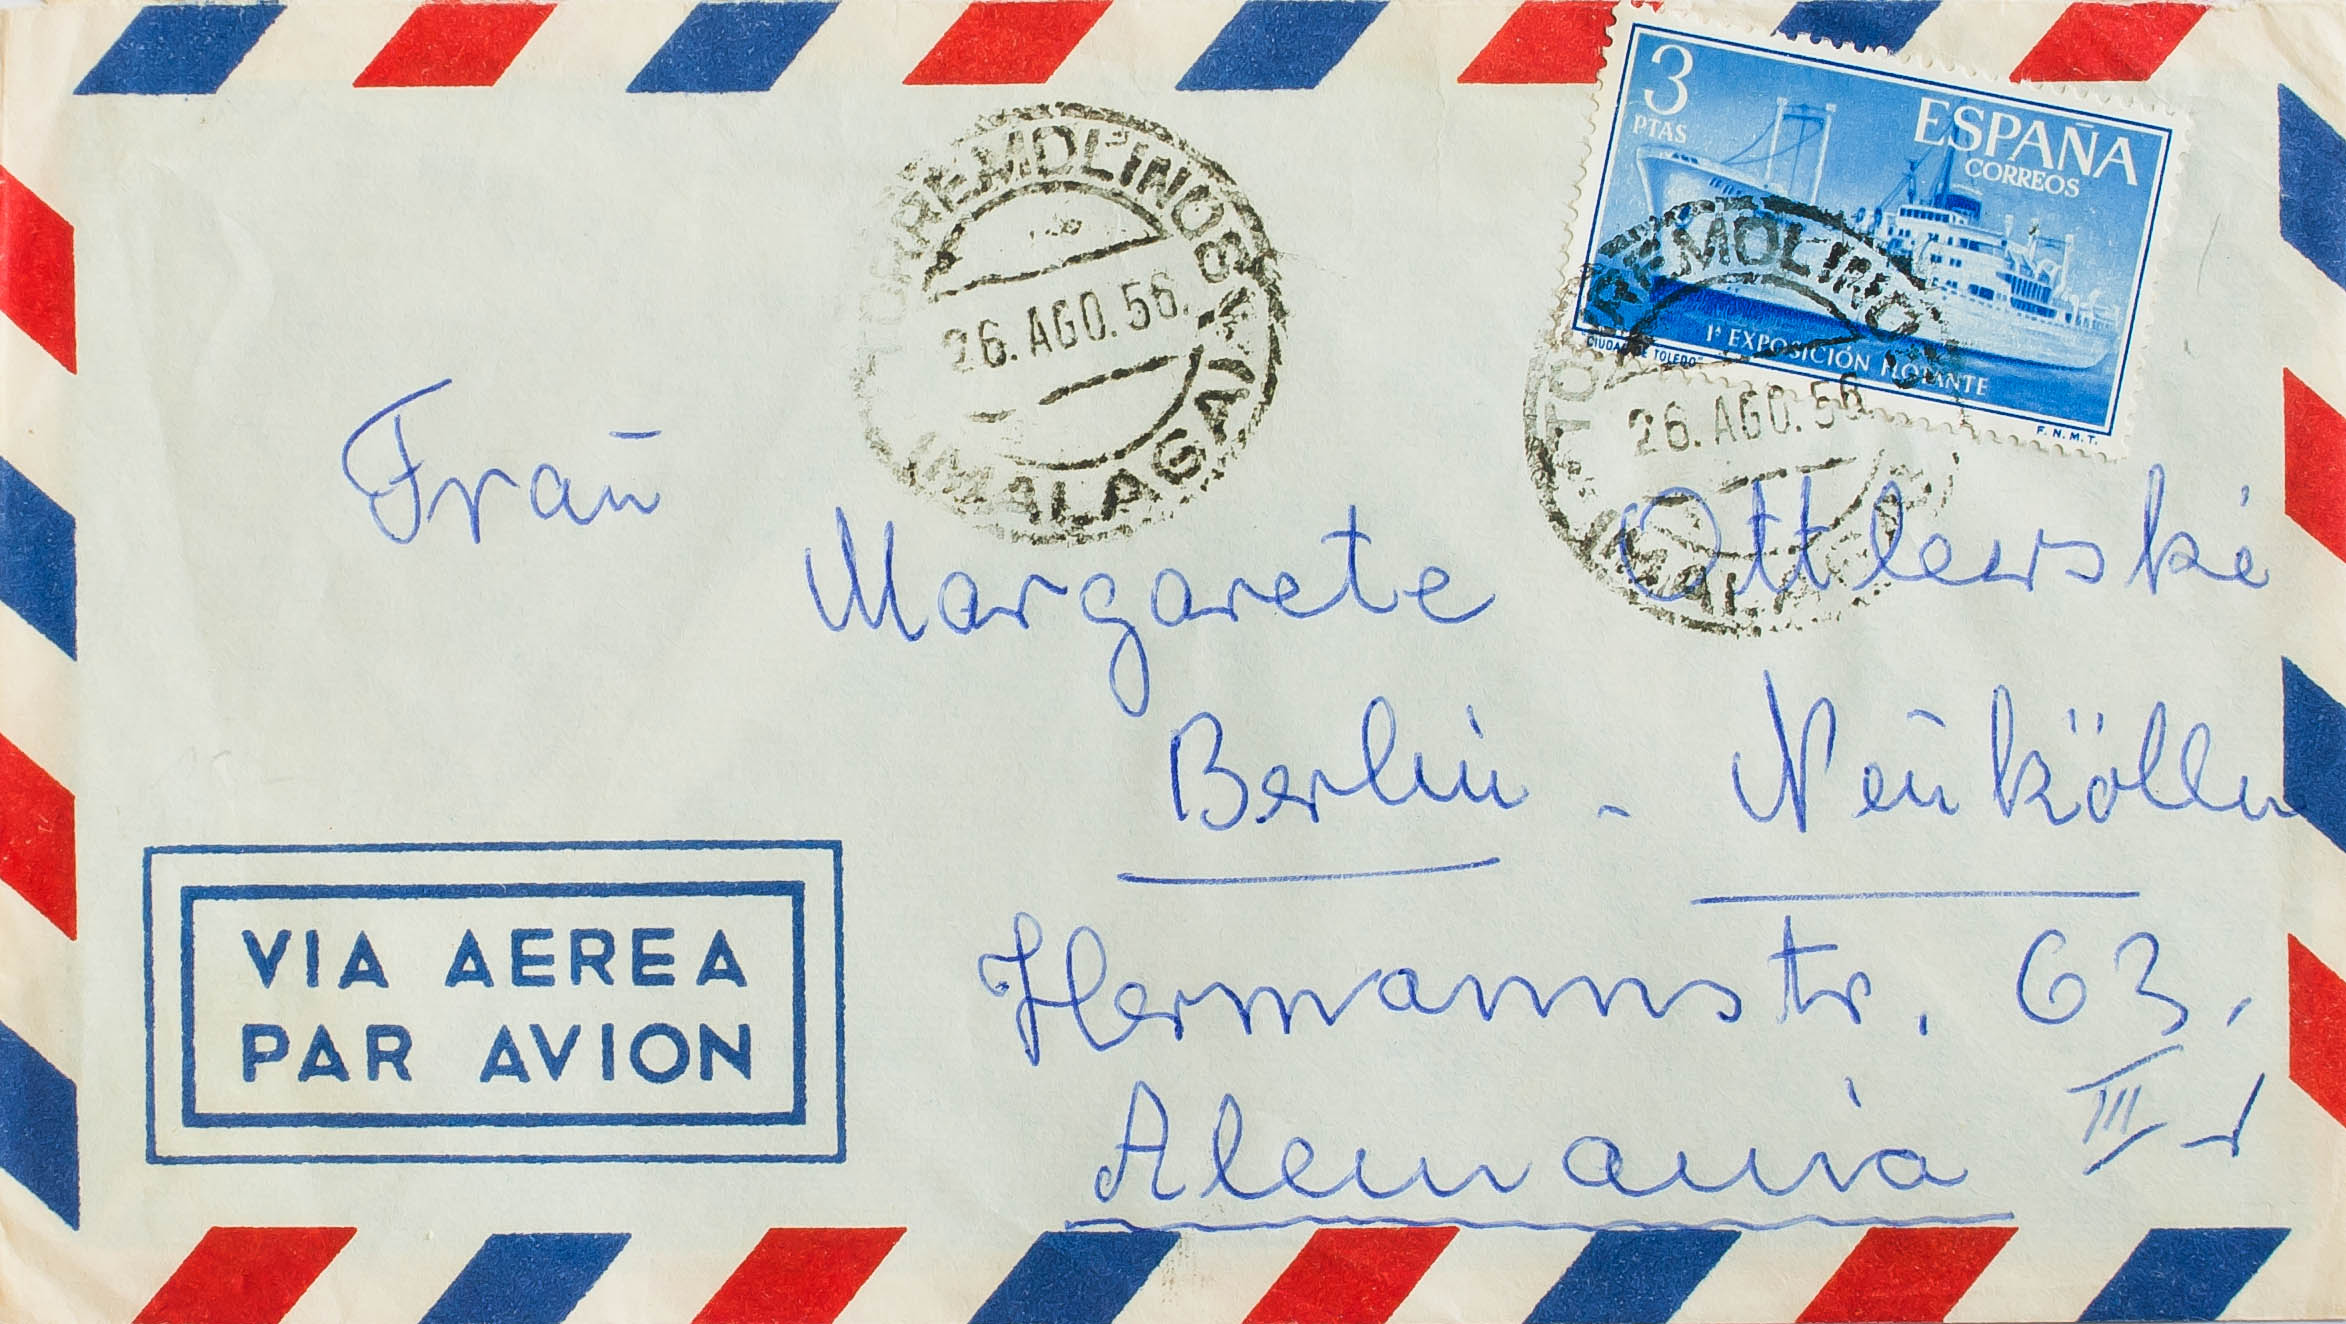 3
PTAS
ESPAÑA
CORREOS
1ª EXPOSICIÓN FLOTANTE
"CIUDAD DE TOLEDO"
F.N.M.T.
TORREMOLINOS
26. AGO. 56.
(MALAGA)
TORREMOLINOS
26. AGO. 56
(MALAGA)
Frau
Margarete Ottlewski
Berlin - Neukölln
Hermannstr. 63,
III
Alemania
VIA AEREA
PAR AVION